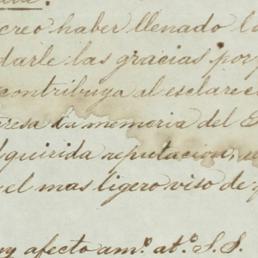 creo haber llenado lo
darle las gracias por
contribuya al esclarec
resa la memoria del E
quirida reputacion, se
el mas ligero viso de
y afecto am.º at.º S. S.